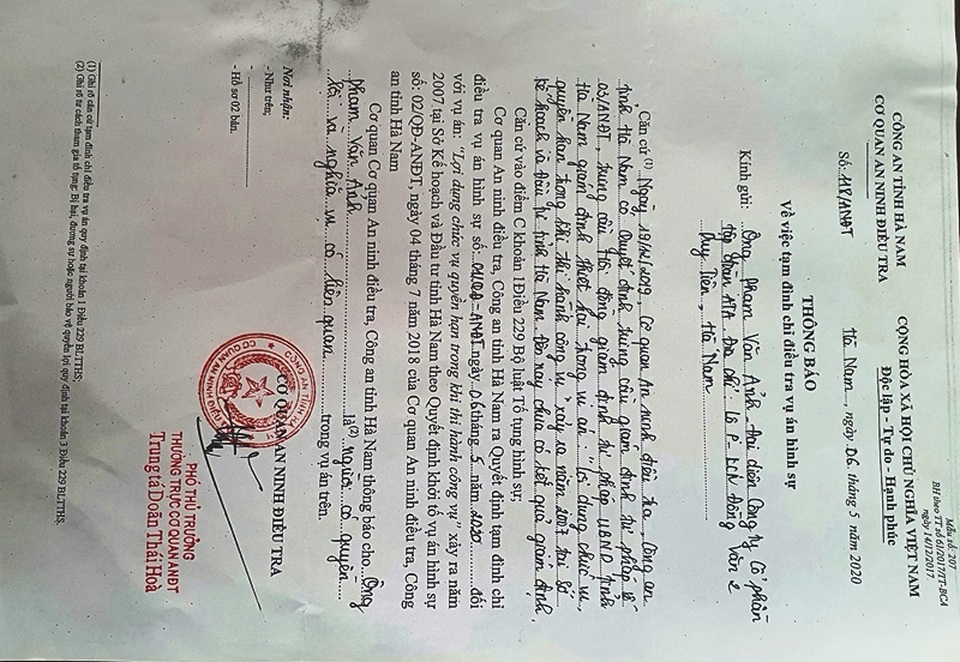 Mẫu số: 207
BH theo TT số 61/2017/TT-BCA
ngày 14/12/2017
CÔNG AN TỈNH HÀ NAM
CƠ QUAN AN NINH ĐIỀU TRA
CỘNG HÒA XÃ HỘI CHỦ NGHĨA VIỆT NAM
Độc lập - Tự do - Hạnh phúc
Số: 118/ANĐT
Hà Nam, ngày 06 tháng 5 năm 2020
THÔNG BÁO
Về việc tạm đình chỉ điều tra vụ án hình sự
Kính gửi: Ông Phạm Văn Ảnh, đại diện Công ty Cổ phần
tập đoàn Địa chỉ: Lô P. KCN Đồng Văn 2
Duy Tiên, Hà Nam
Căn cứ (1) Ngày 2019, Cơ quan An ninh điều tra, Công an
tỉnh Hà Nam có Quyết định trưng cầu giám định tư pháp số
03/ANĐT, trưng cầu Hội đồng giám định tư pháp UBND tỉnh
Hà Nam giám định thiệt hại trong vụ án "Lợi dụng chức vụ,
quyền hạn trong khi thi hành công vụ" xảy ra năm 2007 tại Sở
Kế hoạch và Đầu tư tỉnh Hà Nam. Đến nay chưa có kết quả giám định.
Căn cứ vào điểm C khoản 1Điều 229 Bộ luật Tố tụng hình sự;
Cơ quan An ninh điều tra, Công an tỉnh Hà Nam ra Quyết định tạm đình chỉ
điều tra vụ án hình sự số: 01/QĐ-ANĐT ngày 06 tháng 5 năm 2020 đối
với vụ án: "Lợi dụng chức vụ quyền hạn trong khi thi hành công vụ" xảy ra năm
2007 tại Sở Kế hoạch và Đầu tư tỉnh Hà Nam theo Quyết định khởi tố vụ án hình sự
số: 02/QĐ-ANĐT, ngày 04 tháng 7 năm 2018 của Cơ quan An ninh điều tra, Công
an tỉnh Hà Nam
Cơ quan Cơ quan An ninh điều tra, Công an tỉnh Hà Nam thông báo cho: Ông
Phạm Văn Ảnh là(2) Người có quyền
lợi và nghĩa vụ có liên quan trong vụ án trên.
Nơi nhận:
- Như trên;
-
- Hồ sơ 02 bản.
CƠ QUAN AN NINH ĐIỀU TRA
CÔNG AN TỈNH HÀ NAM
CƠ QUAN AN NINH ĐIỀU TRA
PHÓ THỦ TRƯỞNG
THƯỜNG TRỰC CƠ QUAN ANĐT
Trung tá Doãn Thái Hoà
(1) Ghi rõ căn cứ tạm đình chỉ điều tra vụ án quy định tại khoản 1 Điều 229 BLTTHS;
(2) Ghi rõ tư cách tham gia tố tụng: Bị hại, đương sự hoặc người bảo vệ quyền lợi quy định tại khoản 3 Điều 229 BLTTHS.